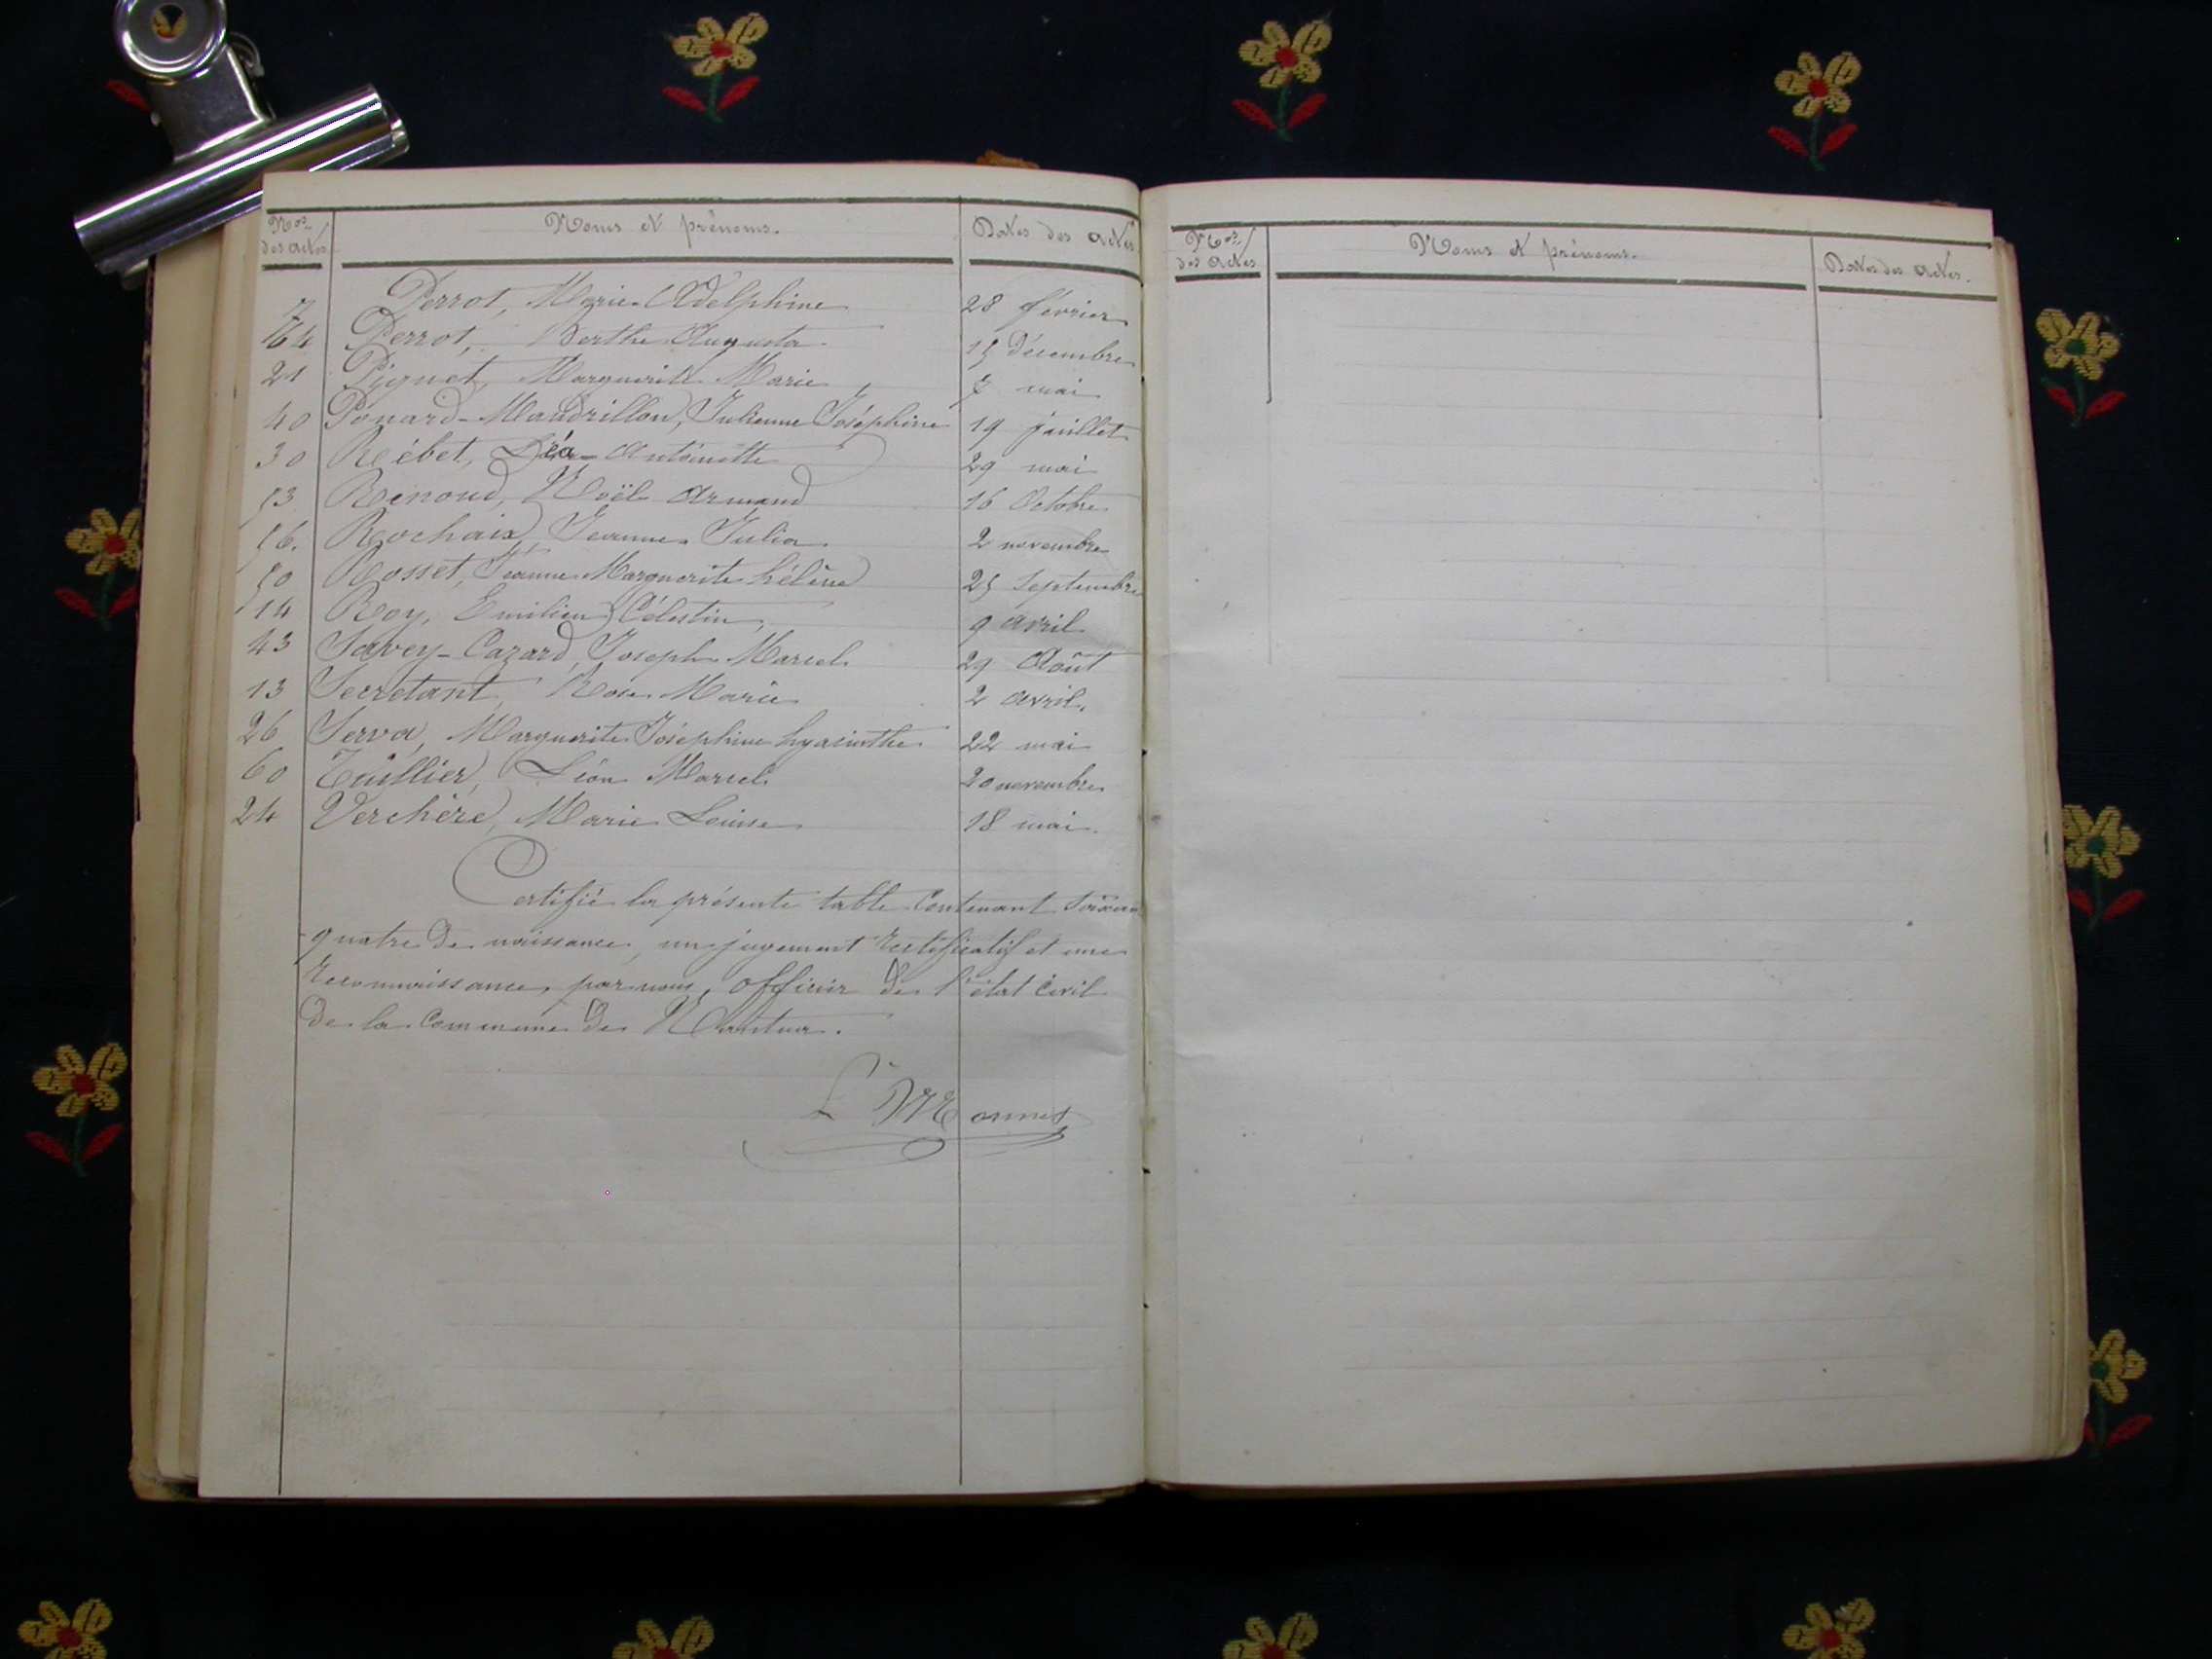 Nos Noms et prénoms. Dates des actes
des actes
7 Perrot, Marie Adelphine 28 février
64 Perrot, Berthe Augusta 15 décembre
21 Piquet, Marguerite Marie 7 mai
40 Ponard-Maudrillon, Julienne Joséphine 19 juillet
30 Réébet, Léa Antoinette 29 mai
53 Renoud, Noël Armand 16 Octobre
56. Rochaix, Jeanne Julia 2 novembre
50 Rosset, Jeanne Marguerite hélène 25 Septembre
14 Roy, Emilien Célestin, 9 avril
43 Savey-Cazard, Joseph Marcel 29 Août
13 Secretant, Rose Marie 2 avril.
26 Serva, Marguerite Joséphine hyacinthe 22 mai
60 Tuillier, Léon Marcel 20 novembre
24 Verchère, Marie Louise 18 mai.
Certifié la présente table Contenant
quatre de naissance, un jugement rectificatif et une
reconnaissance, par nous, officier de l'état Civil
de la Commune de Nantua.
L. Monnet
Nos Noms et prénoms. Dates des actes.
des actes